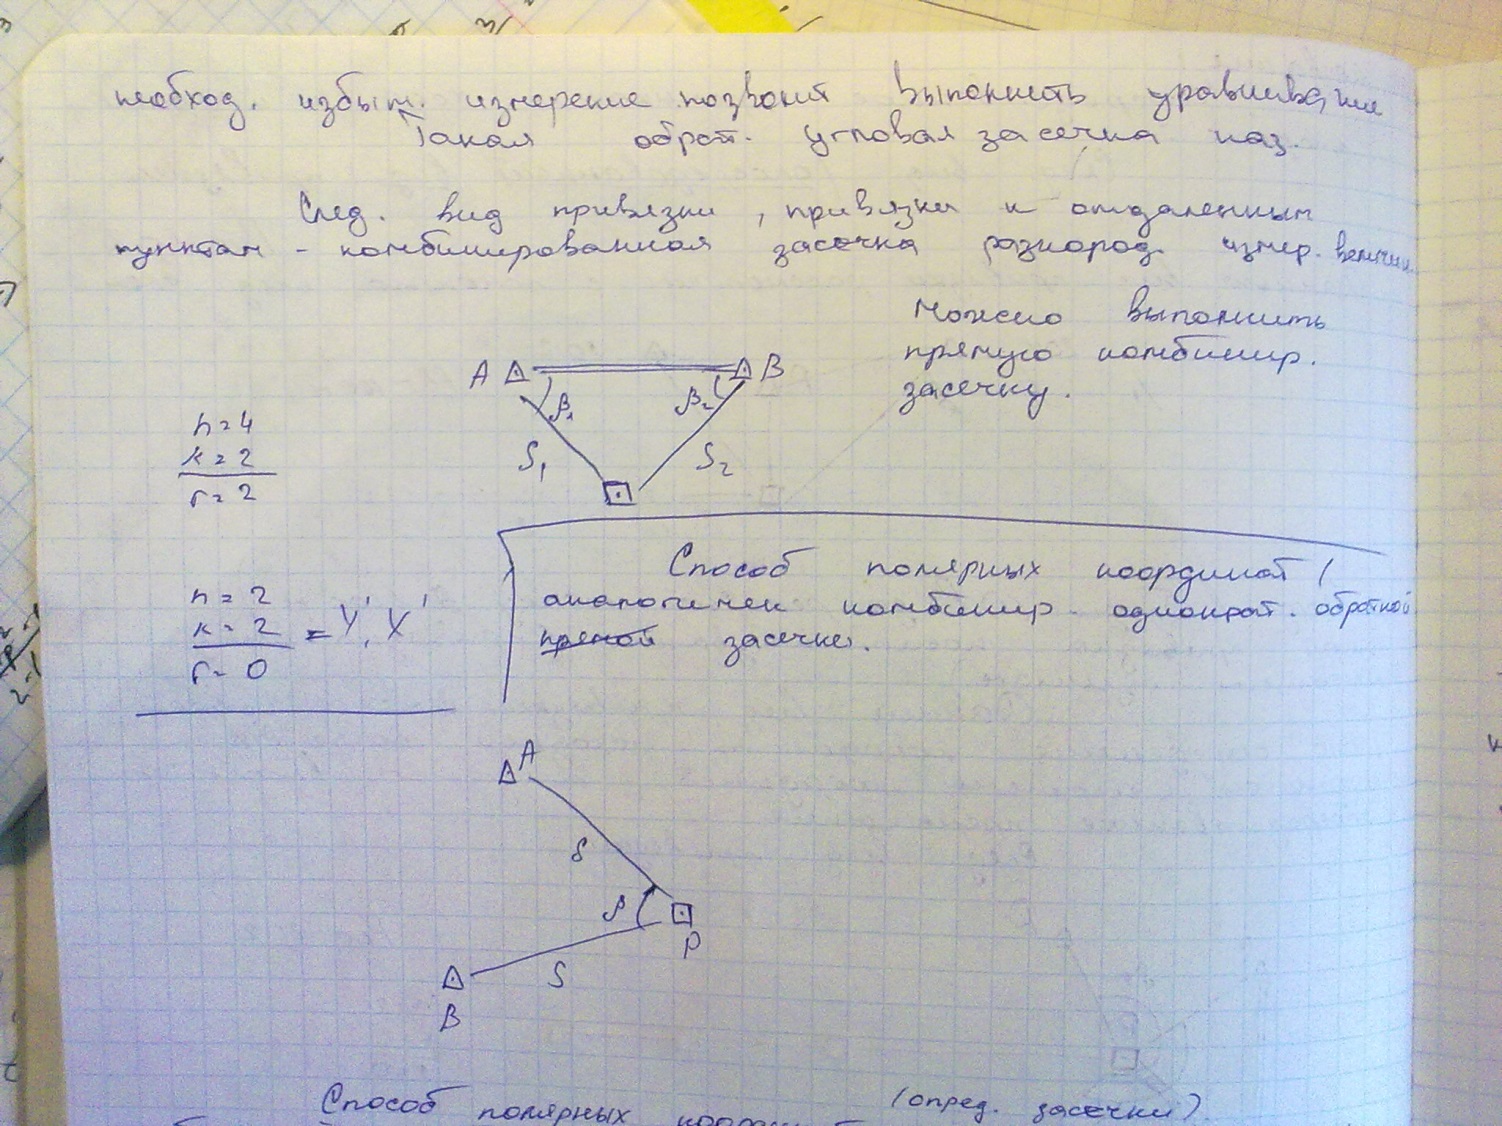 необход. избыт. измерение позволит выполнить уравнивание
Такая обрат. угловая засечка наз.
След. вид привязки, привязки к отдаленным
пунктам - комбинированная засечка разнород. измер. величин.
Можно выполнить
прямую комбинир.
засечку.
A B
β₁ β₂
S₁ S₂
n = 4
к = 2
r = 2
Способ полярных координат /
аналогичен комбинир. однократ. обратной
прямой засечке.
n = 2
к = 2 = Y', X'
r = 0
A
S
β
P
S
B
Способ полярных (опред. засечки).